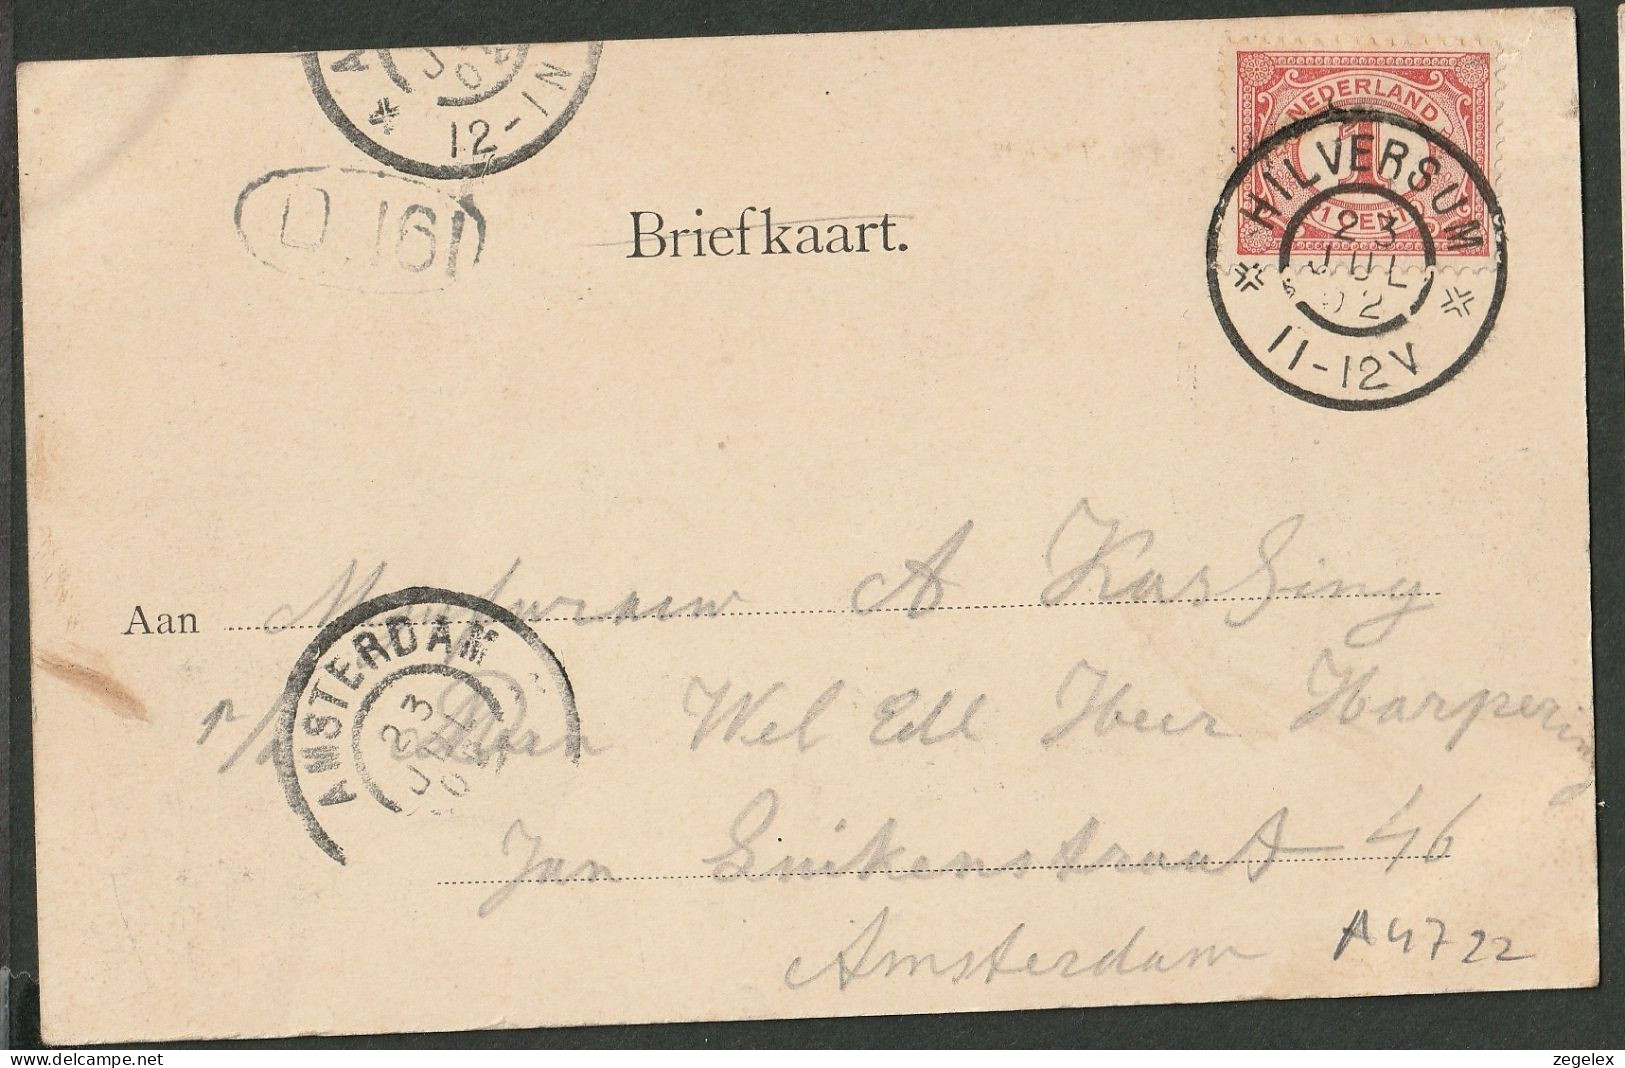 A
J
0
12-1N
D.161
Briefkaart.
NEDERLAND
1
1 CENT
HILVERSUM
23
JUL
02
11-12V
Aan Mejufvrouw A Kassing
p/a Den Wel Edl Heer Harpering
AMSTERDAM
23
JUL
0
Jan Luikenstraat 46
Amsterdam
A4722
delcampe.net
zegelex